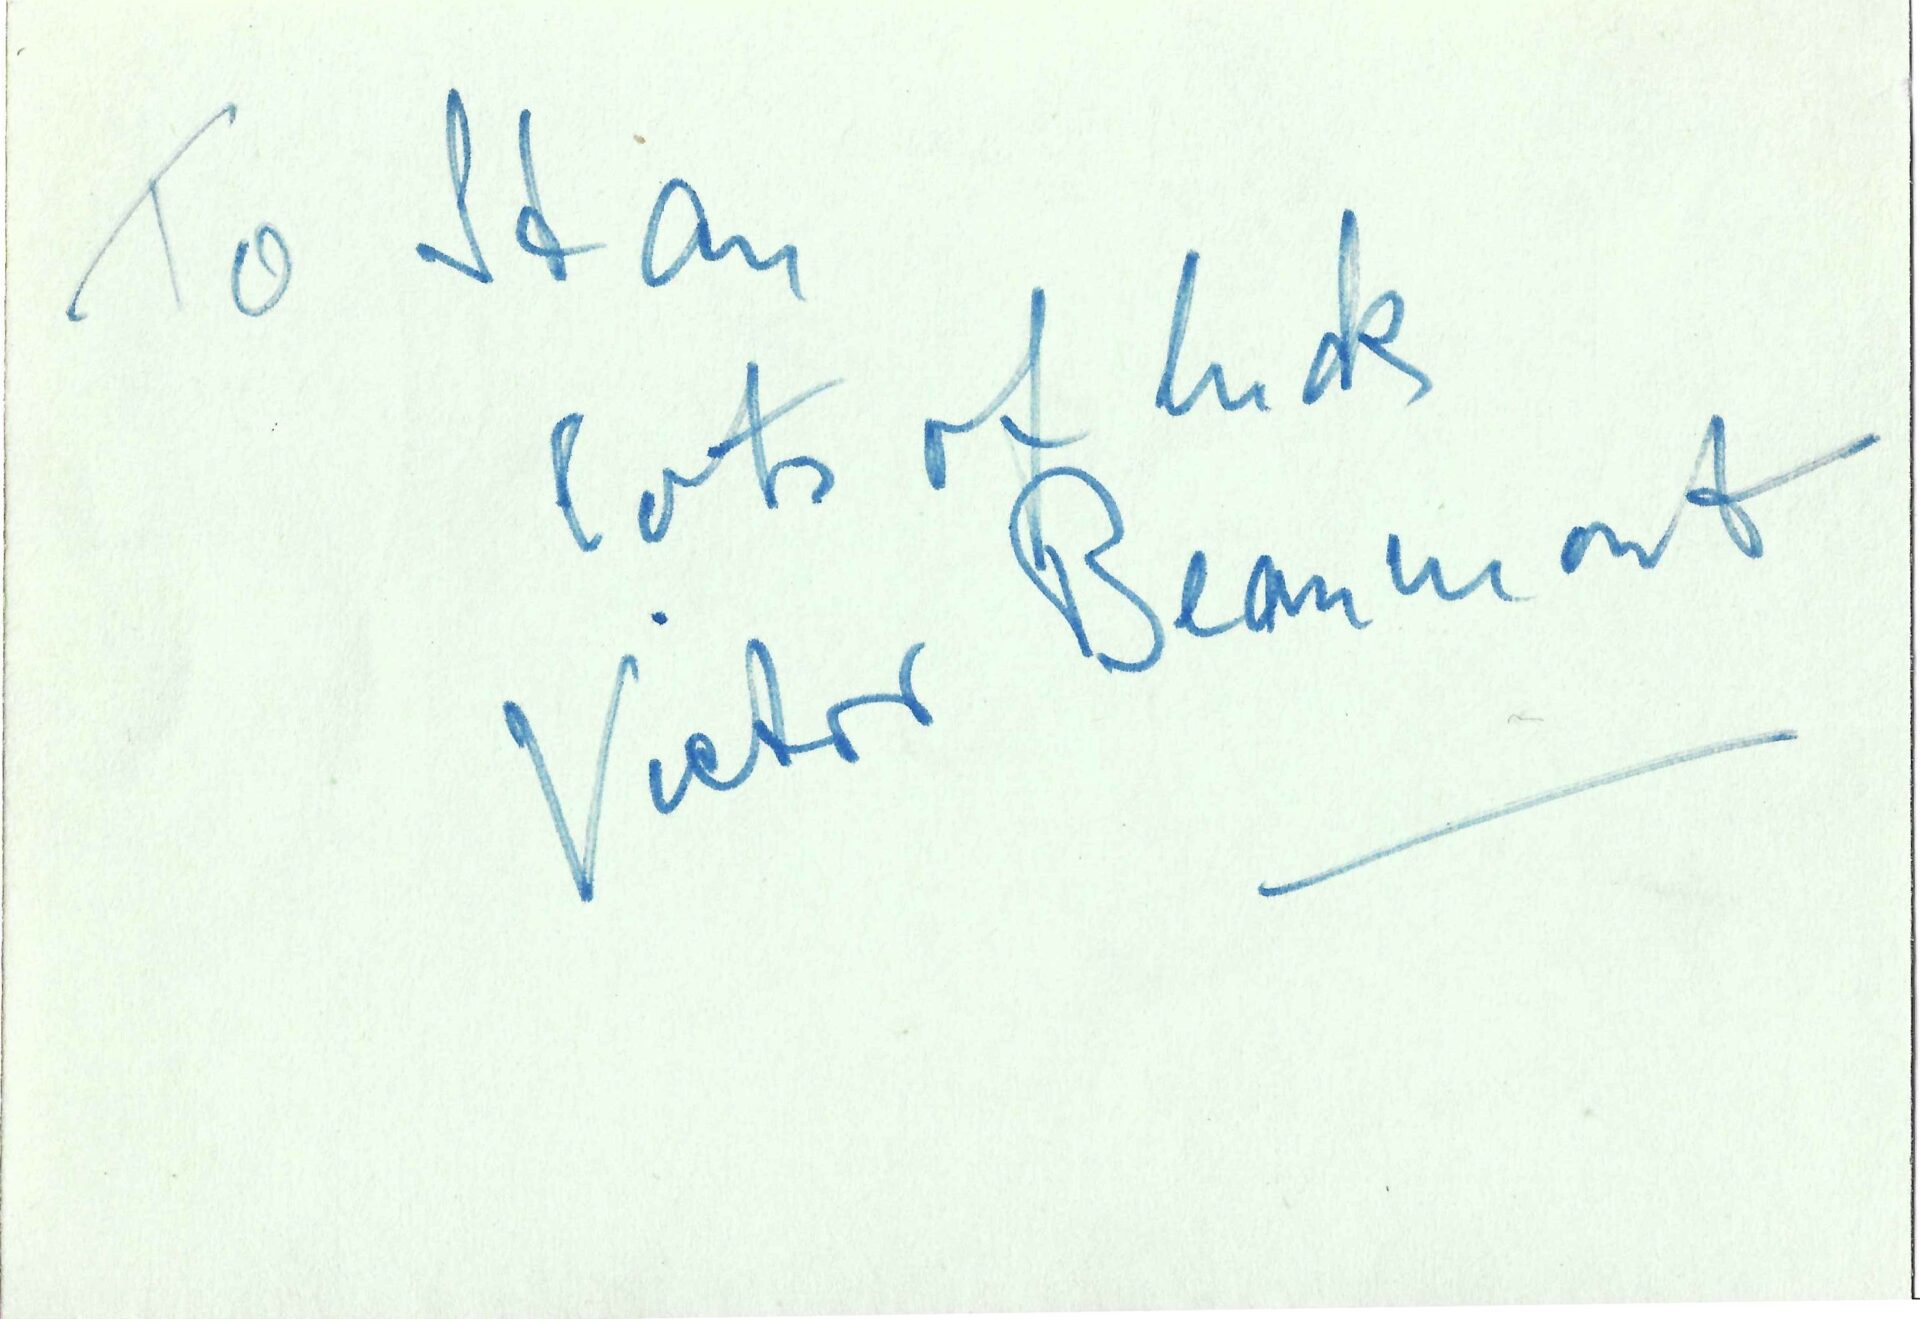 To Stan
lots of luck
Victor Beaumont